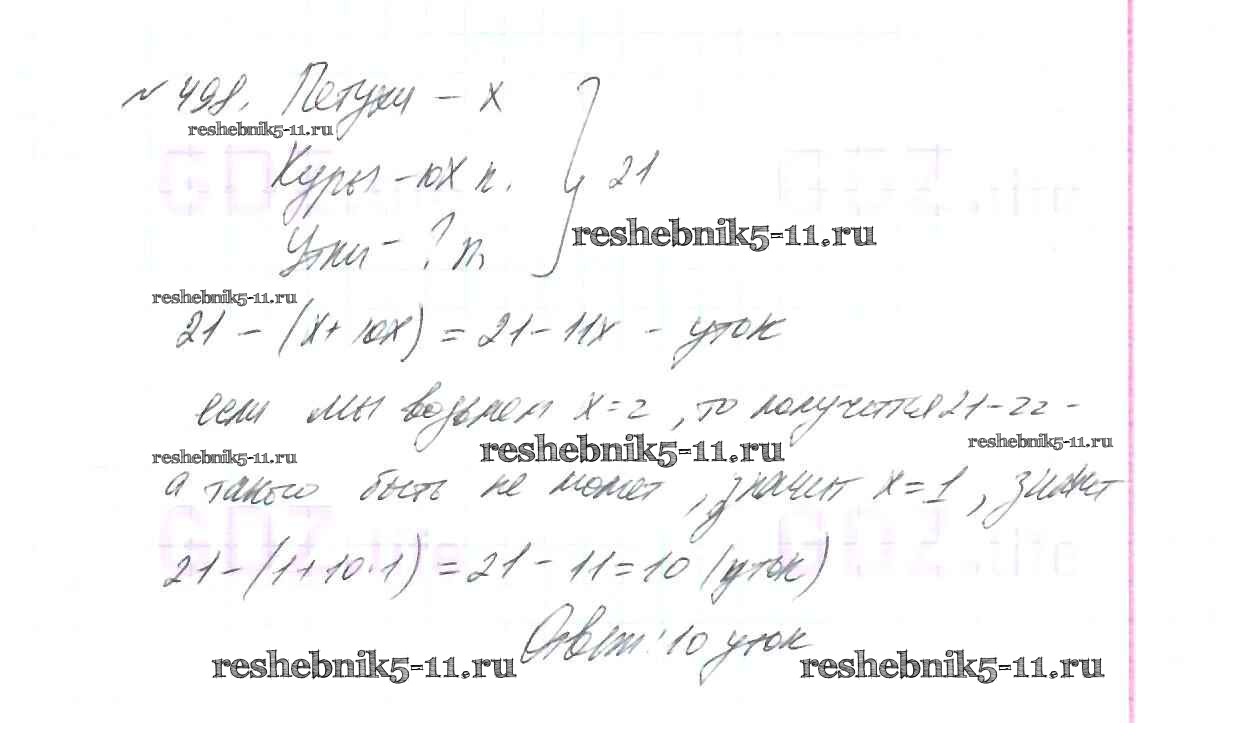 № 498. Петухи – х
reshebnik5-11.ru
Куры – 10х п. } 21
reshebnik5-11.ru
Утки – ? п.
reshebnik5-11.ru
21 – (х + 10х) = 21 – 11х – уток
если мы возьмем х = 2, то получится 21 – 22 –
reshebnik5-11.ru
reshebnik5-11.ru reshebnik5-11.ru
а такого быть не может, значит х = 1, значит
21 – (1 + 10 · 1) = 21 – 11 = 10 (уток)
Ответ: 10 уток
reshebnik5-11.ru reshebnik5-11.ru